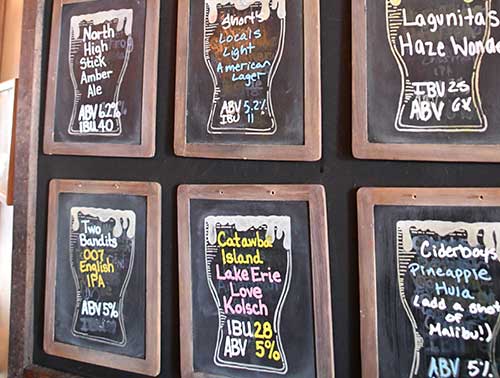 North
High
Stick
Amber
Ale
ABV 6.2%
IBU 40
Short's
Locals
Light
American
Lager
ABV 5.2%
IBU 11
Lagunitas
Haze Wonde
IBU 25
ABV 6%
Two
Bandits
007
English
IPA
ABV 5%
Catawba
Island
Lake Erie
Love
Kolsch
IBU 28
ABV 5%
Ciderboys
Pineapple
Hula
(add a shot
of
Malibu!)
ABV 5%